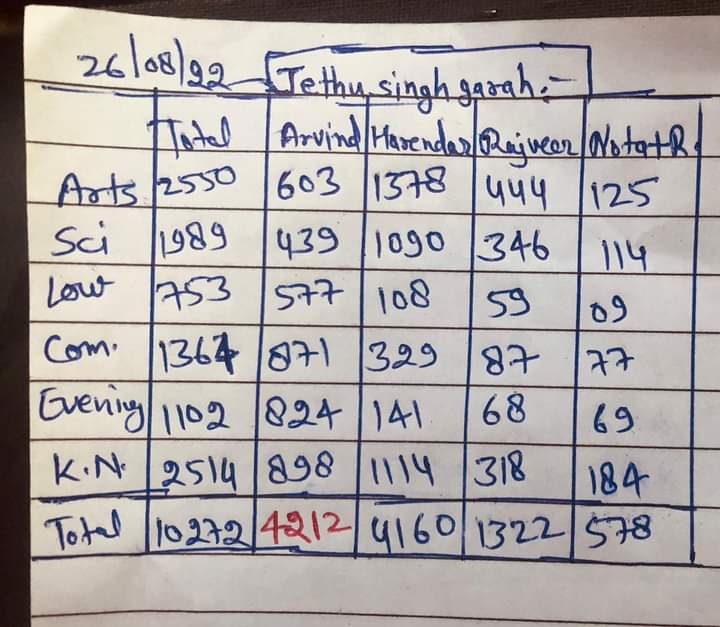 26/08/22 Jethu singh garah:-
Total Arvind Harendar Rajveer Nota+R
Arts 2550 603 1378 444 125
Sci 1989 439 1090 346 114
Low 753 577 108 59 09
Com. 1364 871 329 87 77
Evening 1102 824 141 68 69
K.N. 2514 898 1114 318 184
Total 10272 4212 4160 1322 578